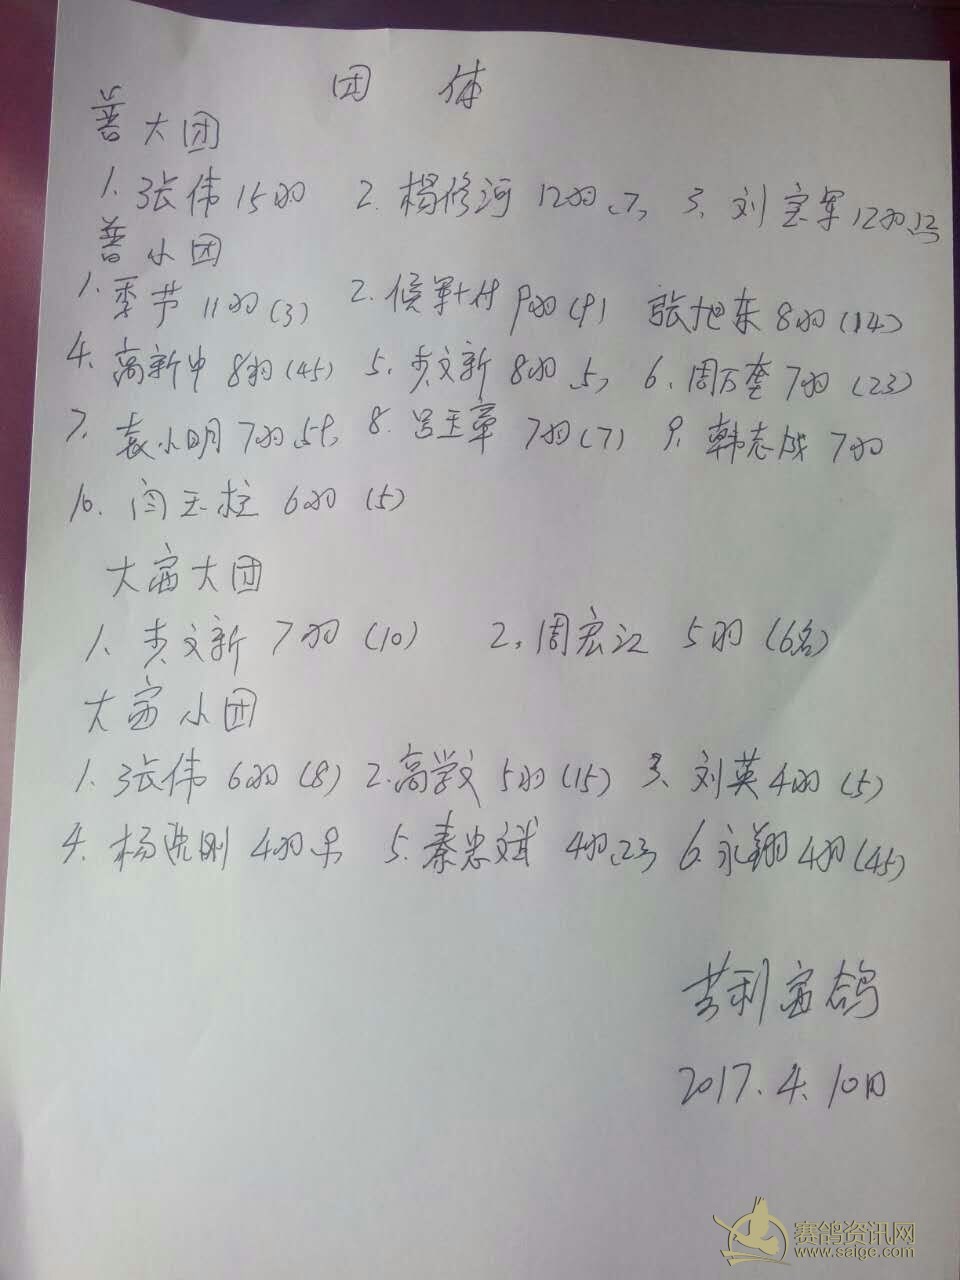 团 体
普大团
1. 张伟 15羽 2. 杨修河 12羽(7) 3. 刘宝军 12羽
普小团
1. 季节 11羽(3) 2. 侯军付 9羽(9) 张旭东 8羽(14)
4. 高新中 8羽(45) 5. 步文新 8羽(5) 6. 周万奎 7羽(23)
7. 袁小明 7羽(59) 8. 吕玉章 7羽(7) 9. 韩志成 7羽
10. 闫玉柱 6羽(5)
大富大团
1. 步文新 7羽(10) 2. 周宏江 5羽(6名)
大富小团
1. 张伟 6羽(8) 2. 高学文 5羽(15) 3. 刘英 4羽(5)
4. 杨 刚 4羽 5. 秦忠斌 4羽(23) 6. 永翔 4羽(45)
吉利富鸽
2017.4.10日
赛鸽资讯网
www.saigc.com